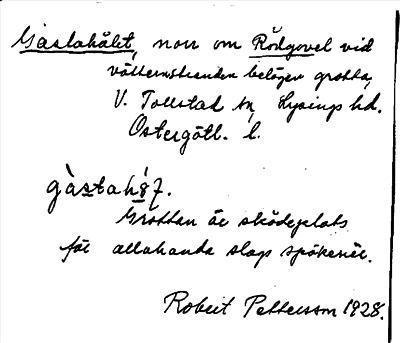 Gastahålet, norr om Rödgavel vid
vätternstranden belägen grotta,
V. Tollstad sn, Lysings hd.
Östergötl. l.
gàstah
Grottan är skådeplats
för allahanda slags spökerier.
Robert Pettersson 1928.